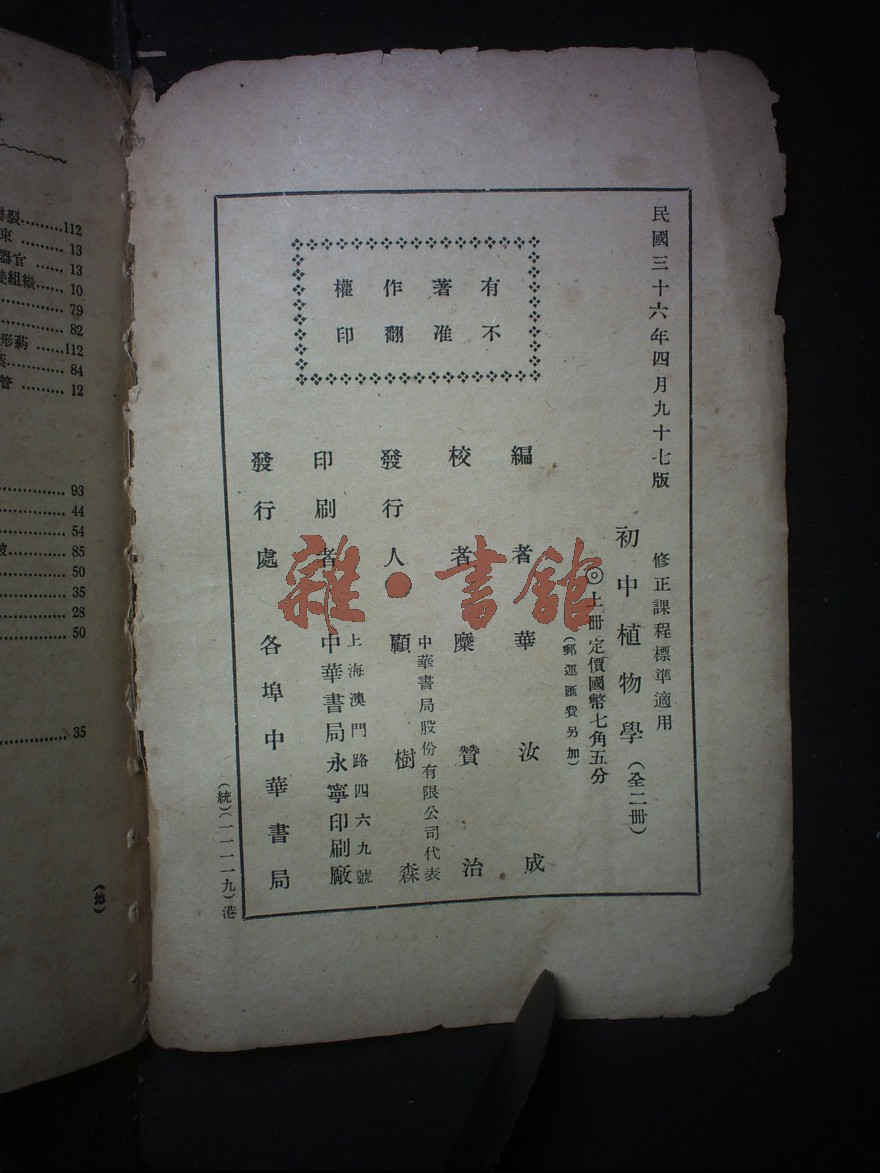 民國三十六年四月九十七版
修正課程標準適用
初中植物學(全二冊)
◎上冊定價國幣七角五分
(郵運匯費另加)
有著作權
不准翻印
編者 華汝成
校者 糜贊治
發行人 顧樹森
中華書局股份有限公司代表
印刷者 中華書局永寧印刷廠
上海澳門路四六九號
發行處 各埠中華書局
(統)(一一一一九)港
雜·書館
裂………112
束………13
器官………13
組織……10
………79
………82
形葯……112
………84
管………12
………93
………44
………54
………85
………50
………35
………28
………50
………35